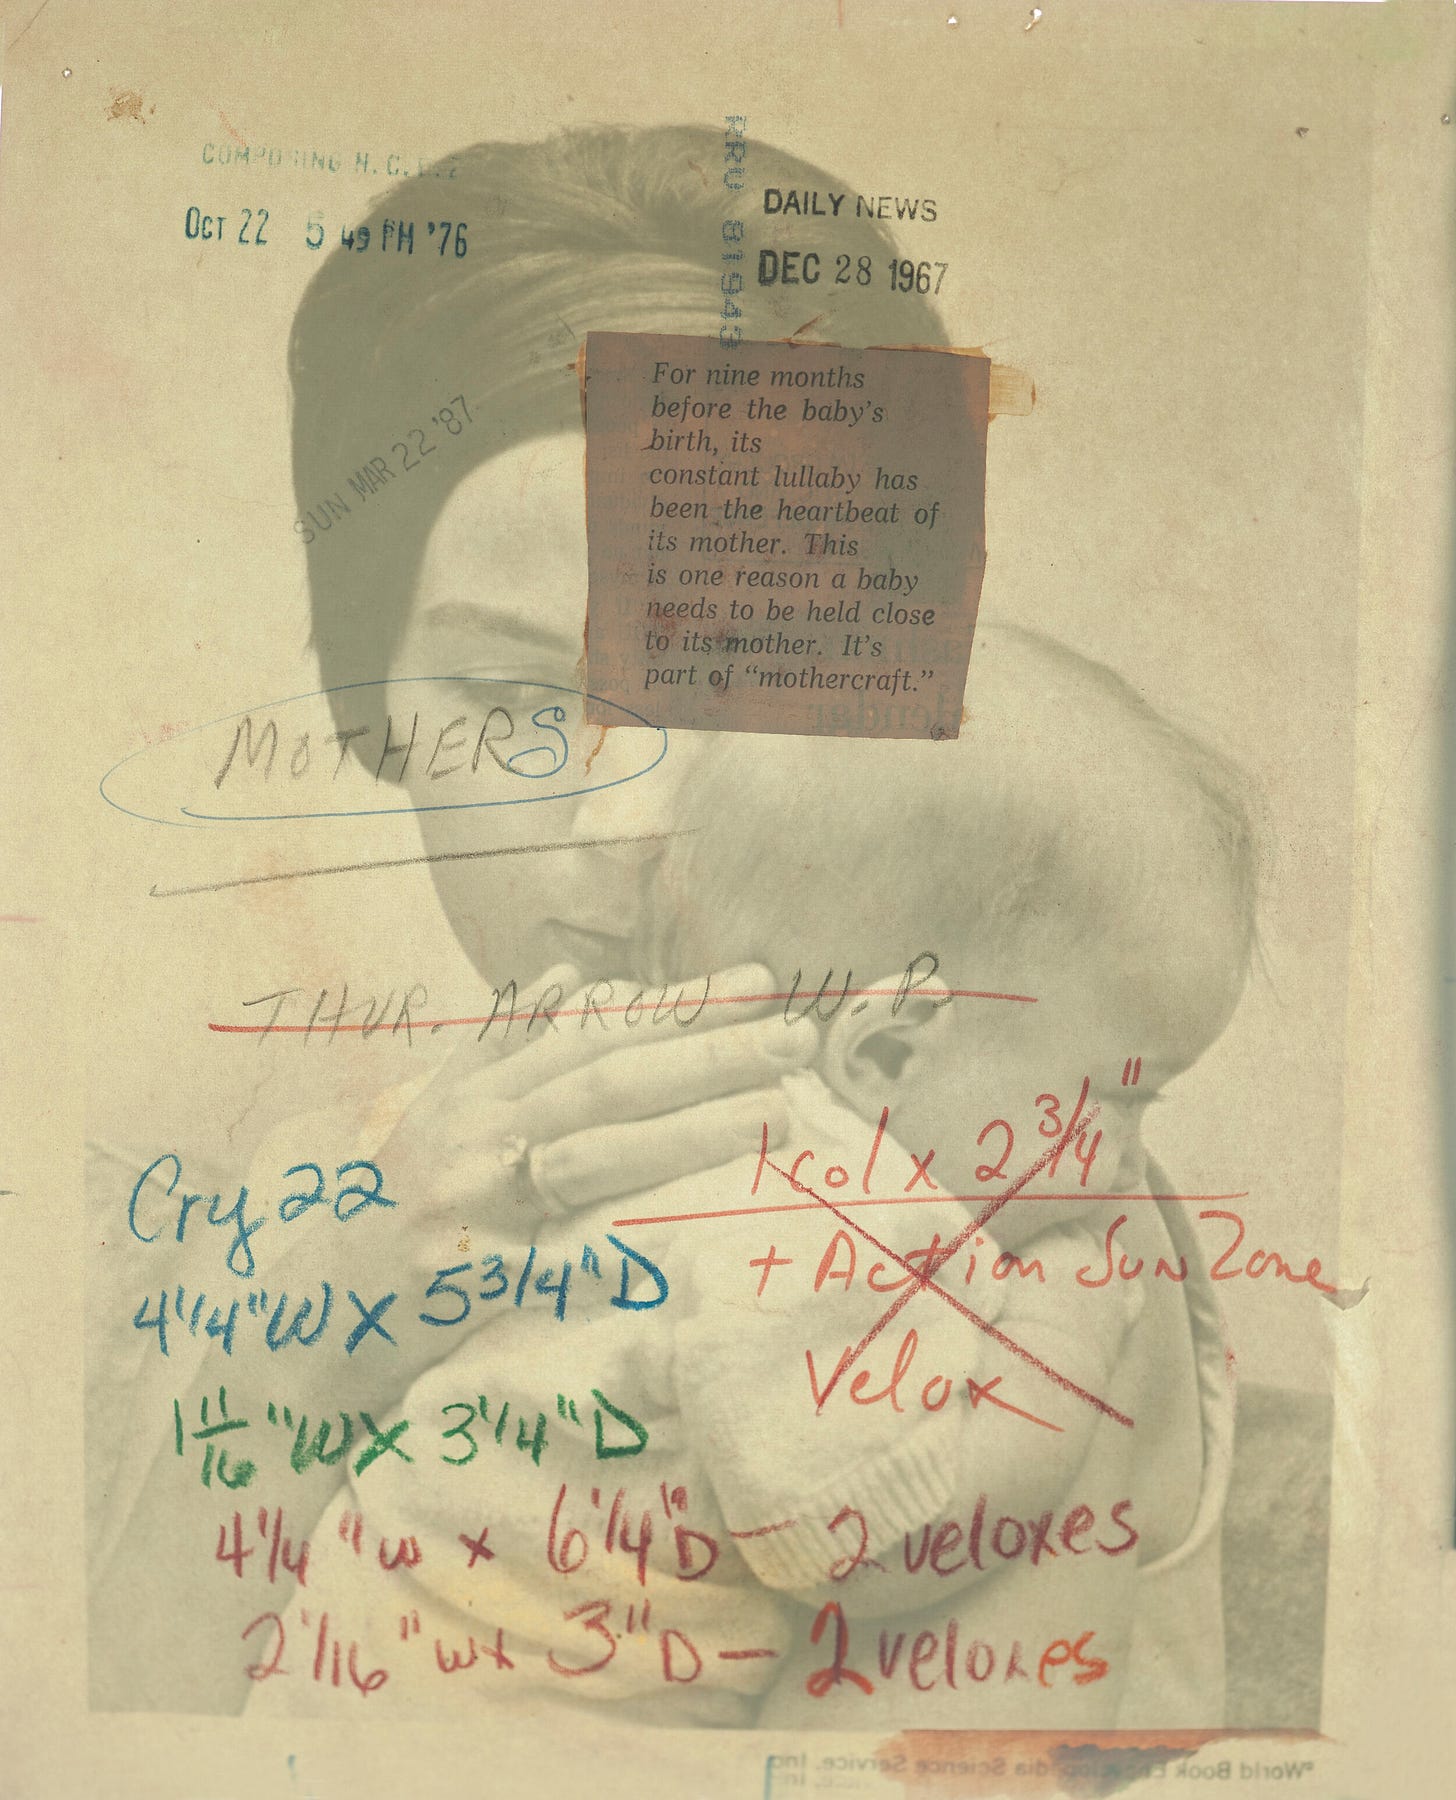 COMPOSING
OCT 22 5 49 PM '76
RRU 81943
DAILY NEWS
DEC 28 1967
SUN MAR 22 '87
For nine months
before the baby's
birth, its
constant lullaby has
been the heartbeat of
its mother. This
is one reason a baby
needs to be held close
to its mother. It's
part of “mothercraft.”
MOTHERS
THUR. ARROW W.P.
1 col x 2 3/4"
+ Action Sun Zone
Velox
Cry 22
4 1/4" W x 5 3/4" D
1 11/16 "W x 3 1/4" D
4 1/4 "w x 6 1/4" D — 2 veloxes
2 1/16 "w x 3" D — 2 veloxes
"World Book Encyclopedia Science Service, Inc.